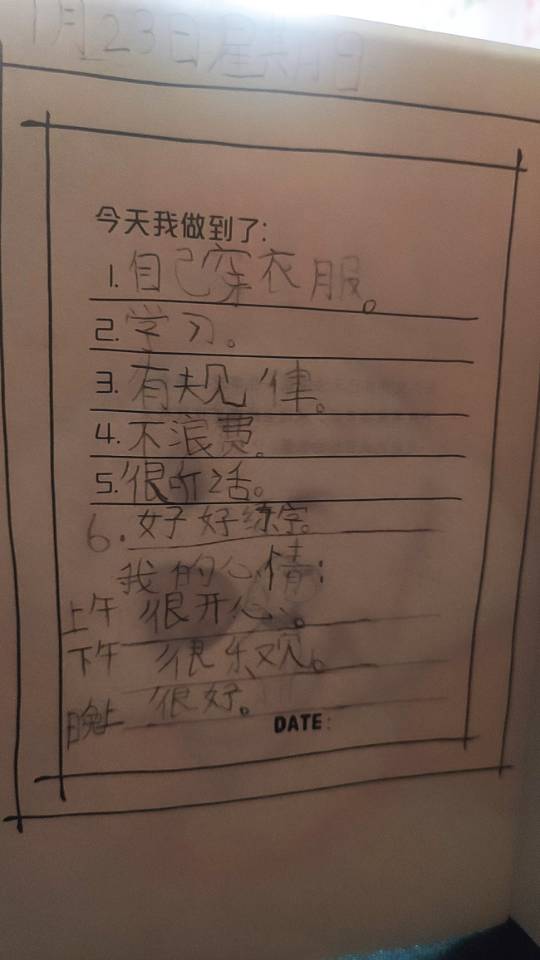 1月23日星期日
今天我做到了:
1.自己穿衣服。
2.学习。
3.有规律。
4.不浪费。
5.很听话。
6.好好练字。
我的心情:
上午 很开心。
下午 很乐观。
晚上 很好。
DATE: